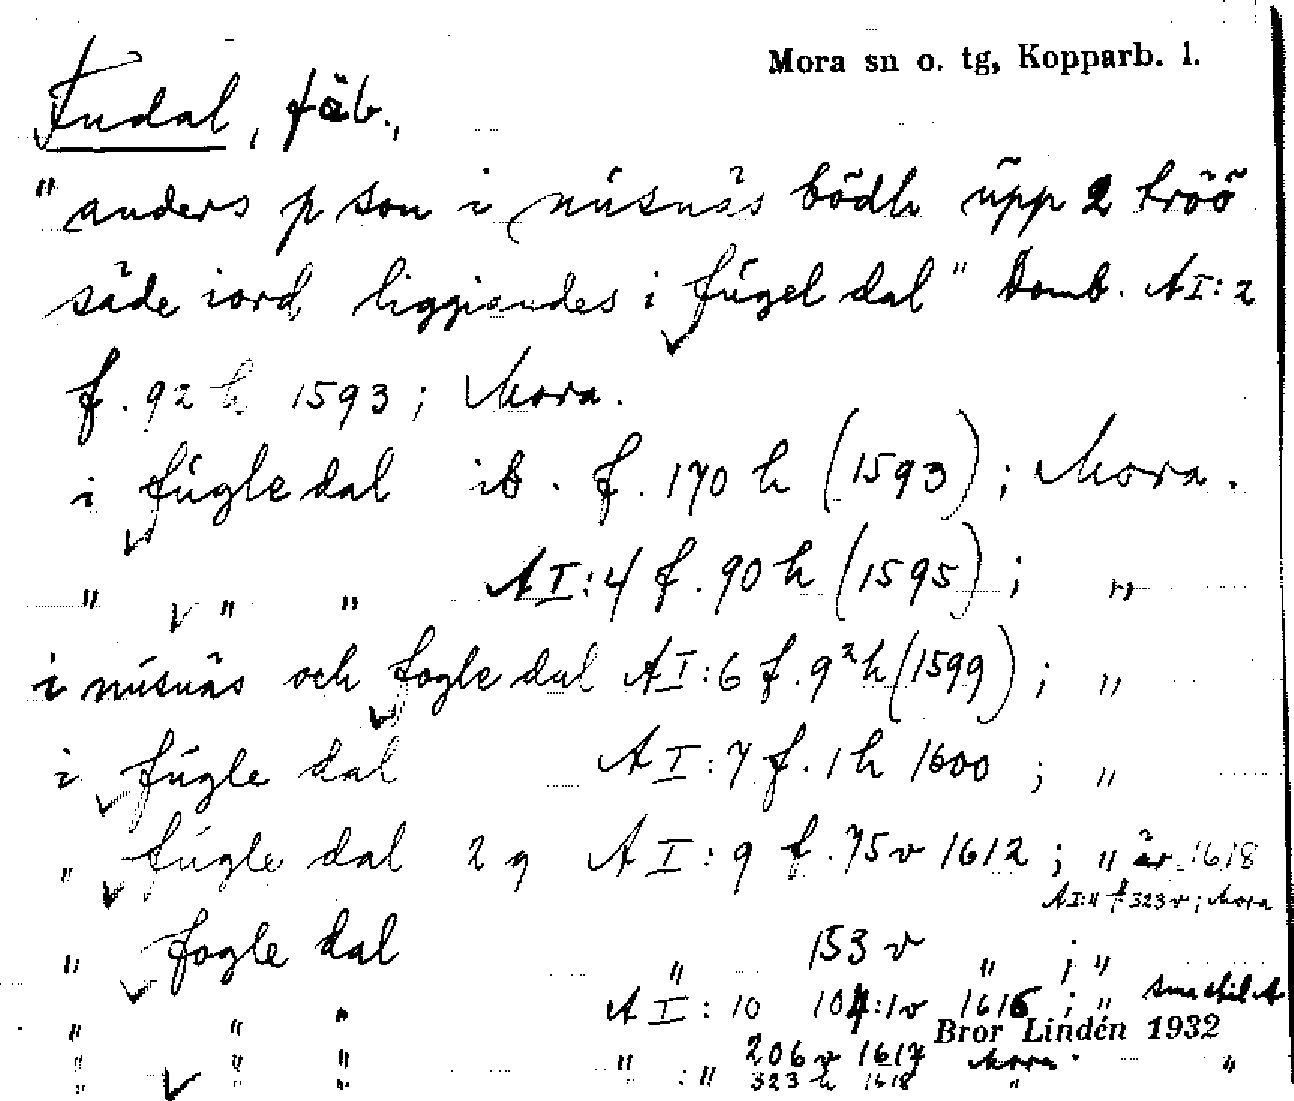 Mora sn o. tg, Kopparb. l.
Fudal, fäb.,
"anders p son i núsnäs bödh ŭpp 2 tröö
säde iord liggiandes i fúgel dal" Domb. AI:2
f. 92 h 1593; Mora.
i fúgle dal ib. f. 170 h (1593); Mora.
" " " AI:4 f. 90 h (1595); "
i núsnäs och fogle dal AI:6 f. 92 h (1599); "
i fúgle dal AI:7 f. 1 h 1600 ; "
" fúgle dal 2 g AI:9 f. 75 v 1612 ; " är 1618
AI:11 f 323 v; Mora
" fogle dal " 153 v " ; "
" " " AI:10 104:1v 1616 ; "
Bror Lindén 1932
" " " " 206 v 1617 Mora "
" " " : " 323 h 1618 "